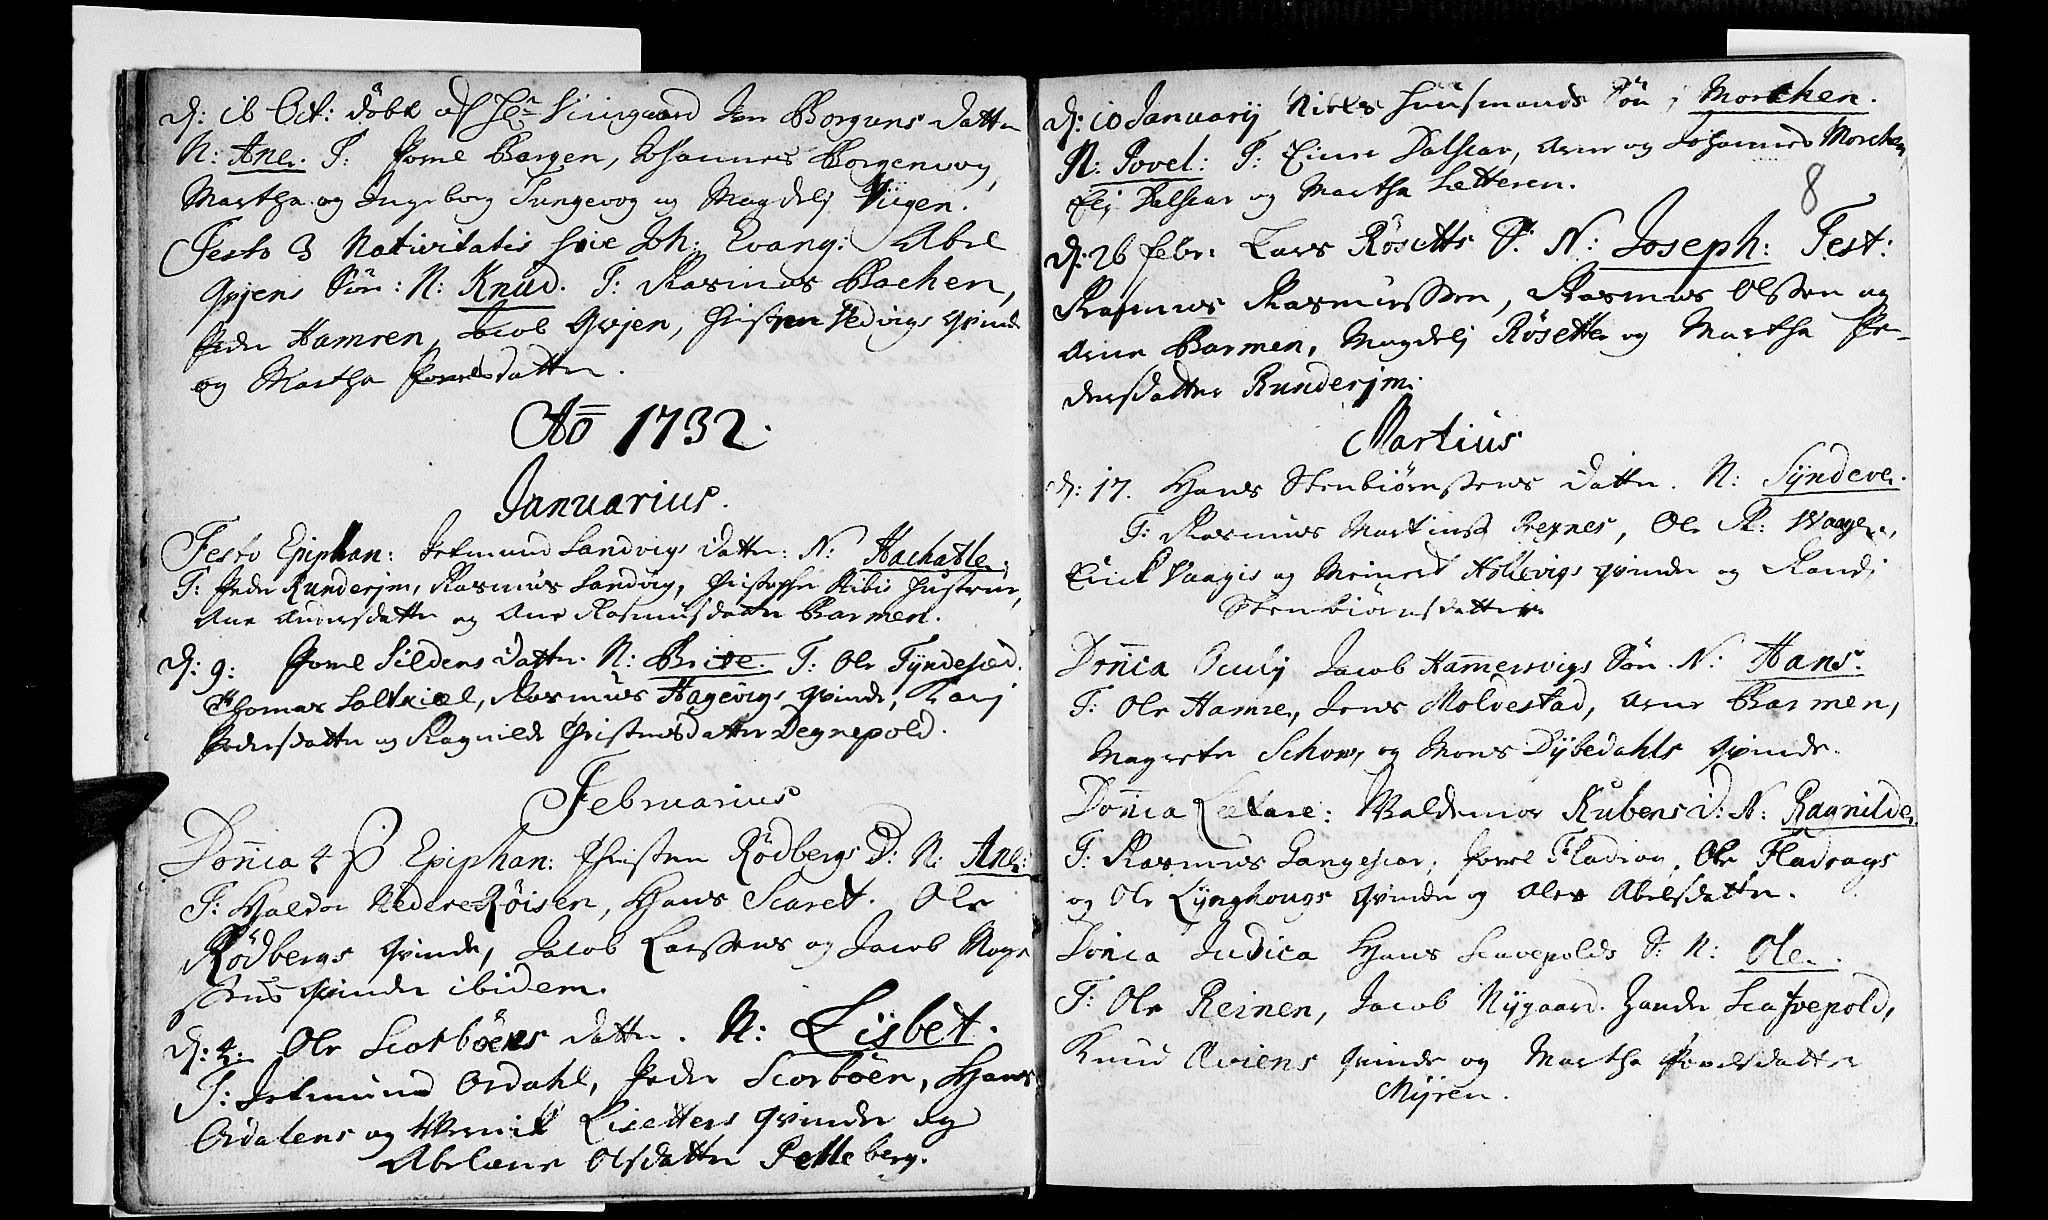 d: 16 Oct: döbt af Hr Viingaard Iver Borguns Datter
N: Ane. T: Povel Bargen, Johannes Borgenvog,
Martha og Ingeborg Tungevog og Magdelj Viigen.
Festo 3 Nativitatis sive Joh: Evang: Abel
Qvjens Sön: N: Knud. T: Rasmus Bachen,
Peder Hamren, Jacob Qvjen, Christen Vedvigs qvinde
og Martha Povelsdatter.
Ao 1732.
Januarius.
Festo Epiphan: Jetmund Sandvigs datter: N: Hachatle.
T: Peder Runderjm, Rasmus Sandvig, Christopher Ribis Hustrue,
Ane Andersdatter og Ane Rasmusdaatter Barmen.
d: 9: Povel Sildens Datter. N: Brite. T: Ole Tyndesæd.
Thomas Saltkiel, Rasmus Hagevigs qvinde, Karj
Pedersdatter og Ragnilde Christensdatter Degnepold.
Februarius
Domica 4 p Epiphan: Christen Rödbergs D: N: Ane:
T: Haldor Nedere Röisen, Hans Scaret. Ole
Rödbergs qvinde, Jacob Larssens og Jacob Mogn
sens qvinde ibidem.
d: 4: Ole Scorböens datter. N: Lisbet.
T: Jetmund Ordahl, Peder Scorböen, Hans
Ordalens og Lisetters qvinde og
Abelone Olsdatter Pelleberg.
d: 10 Januarij Niels Huusmands Sön i Morchen.
N: Povel: T: Einer Dalscar, Arne og Johannes Morchen
Elj Dalscar og Martha Letteren.
8
d: 26 febr: Lars Rösetts S: N: Joseph: Test:
Rasmus Rasmussen, Rasmus Olssen og
Arne Barmen, Magdelj Rösette og Martha Pe-
dersdatter Runderjm.
Martius
d: 17. Hans Stenbiörnssens datter. N: Sÿndeve.
T: Rasmus Martinss Rexnes, Ole R: Waage,
Erick Vaagis og Meinert Hollevigs qvinde og Randj
Stenbiörnsdatter
Domica Oculj Jacob Hammersvigs Sön. N: Hans.
T: Ole Hamre, Jens Molvestad, Arne Barmen,
Magrete Schow, og Mons Dÿbedahls qvinde.
Domica Lætare: Waldemor Kubens D: N: Ragnilde
T: Rasmus Langescar, Povel Fladrag, Ole Fladrags
og Ole Lynghougs qvinde og Abelsdatter.
Domica Judica Hans Scavepolds S: N: Ole.
T: Ole Reinen, Jacob Nygaard. Zander Scafvepold,
Knud Qviens qvinde og Martha Povelsdatter
Mÿren.